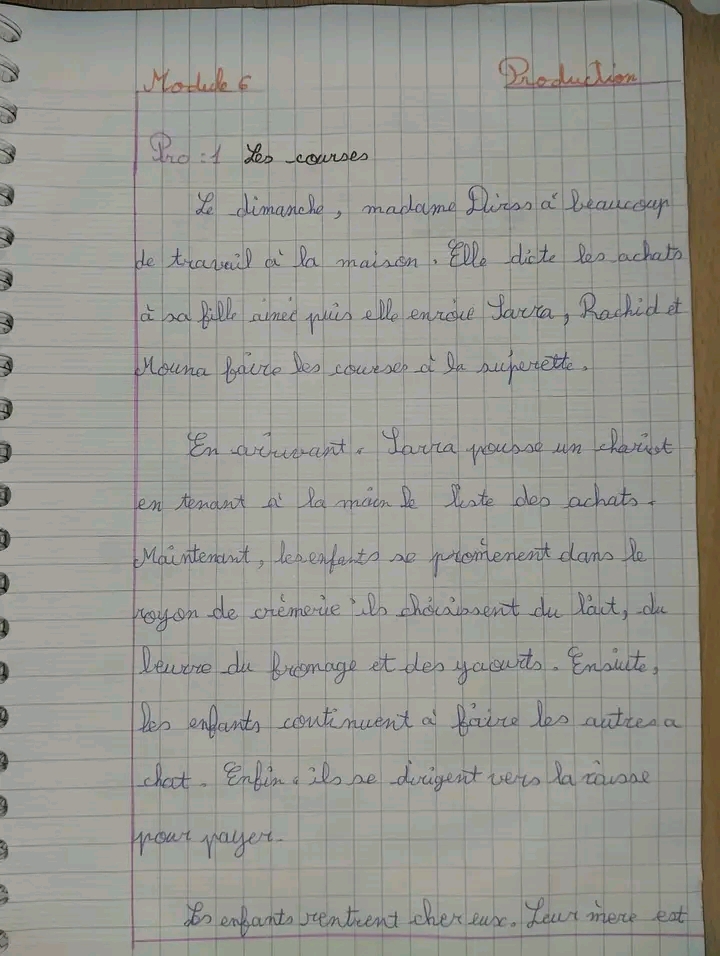 Module 6 Production
Pro : 1 Les courses
Le dimanche, madame Dirss à beaucoup
de travail à la maison. Elle dicte les achats
à sa fille ainée puis elle envoie Sarra, Rachid et
Mouna faire les courses à la superette.
En arrivant. Sarra pousse un chariot
en tenant à la main le liste des achats.
Maintenant, les enfants se promènent dans le
royon de crèmerie ils choisissent du lait, du
beurre du fromage et des yaourts. Ensuite,
les enfants continuent à faire les autres a
chat. Enfin, ils se dirigent vers la caisse
pour payer.
Les enfants rentrent cher eux. Leur mère est